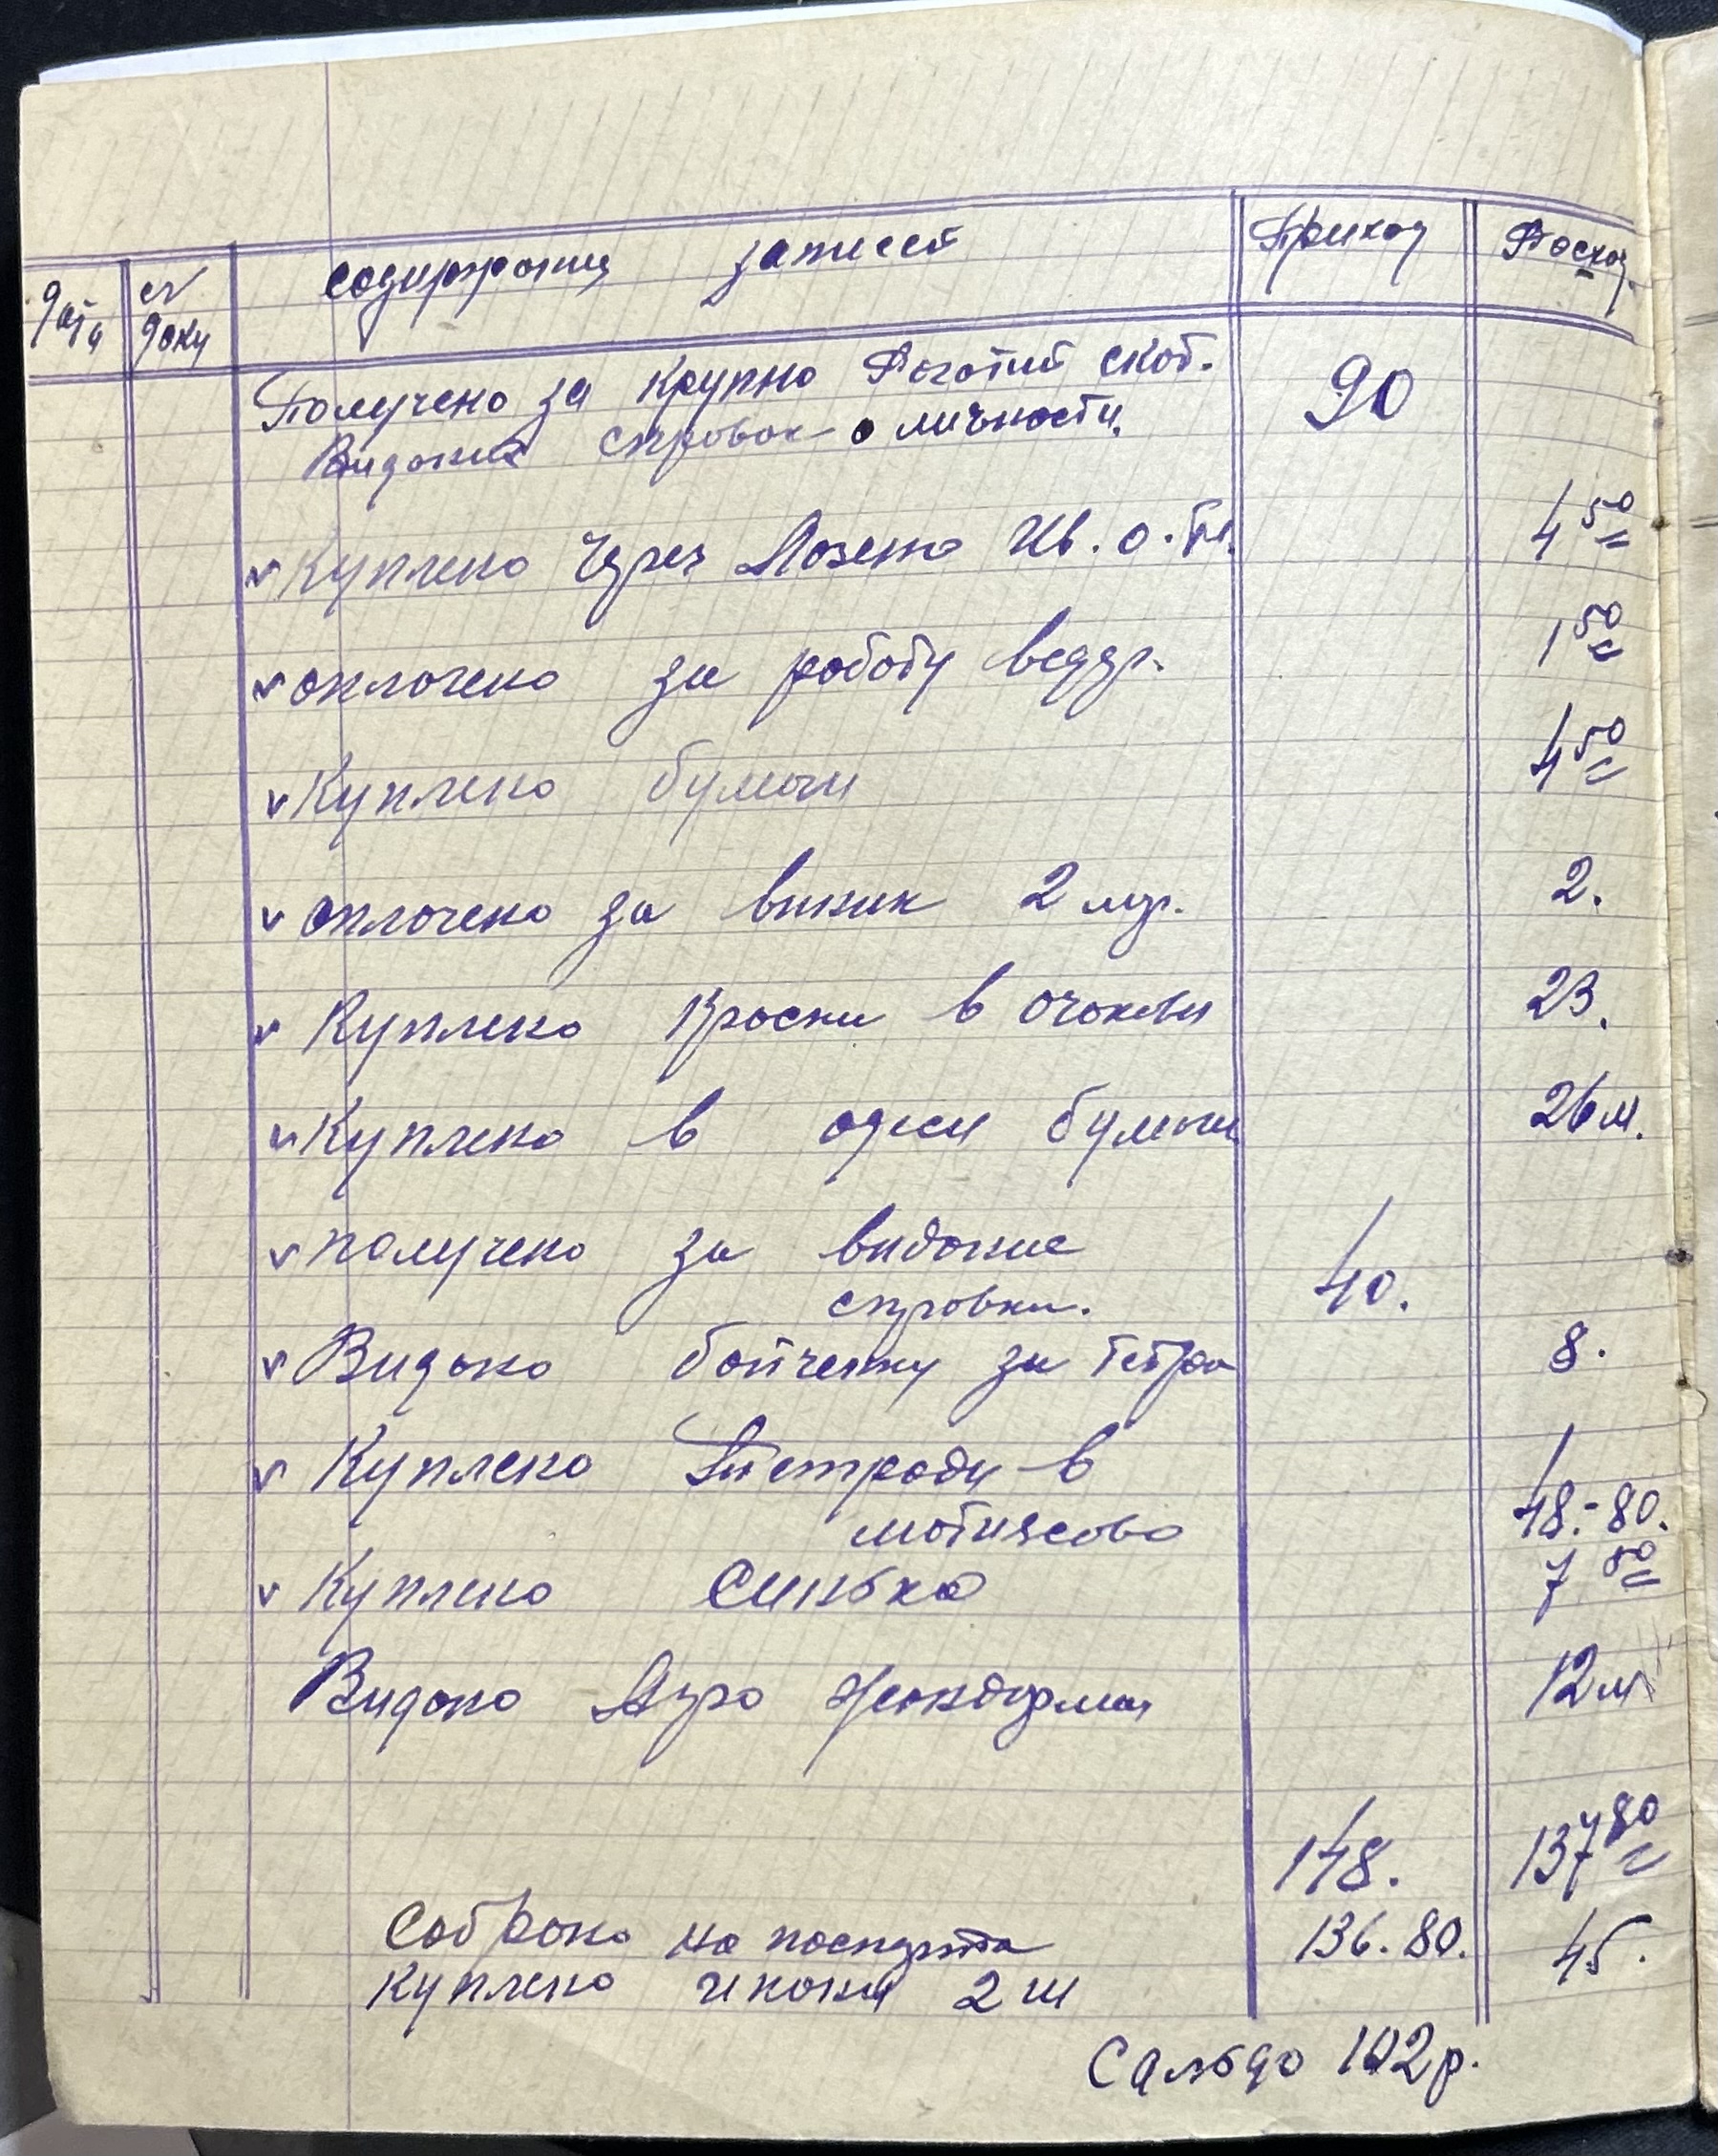 дата
сч
доку
содиржание записей
Приход
Росход.
Получено за крупно Рогатий скот.
Видоние справок о личности.
90
Куплено через Лозена Ив. о. Пл.
4 50
оплочено за роботу ведр.
1 50
Куплено бумаги
4 50
оплочено за виник 2 мр.
2.
Куплено Кроски в Очокови
23.
Куплено в одеси бумаги
26 м.
получено за видоние
справки.
40.
Видоно бойченку за Тетра
8.
Куплено Тетроди в
мотиясово
48.-80.
Куплено Синька
7 50
Видоно Агро
12 м
148.
137 80
Соброно на
136.80.
Куплено икони 2 ш
45.
Сальдо 102р.